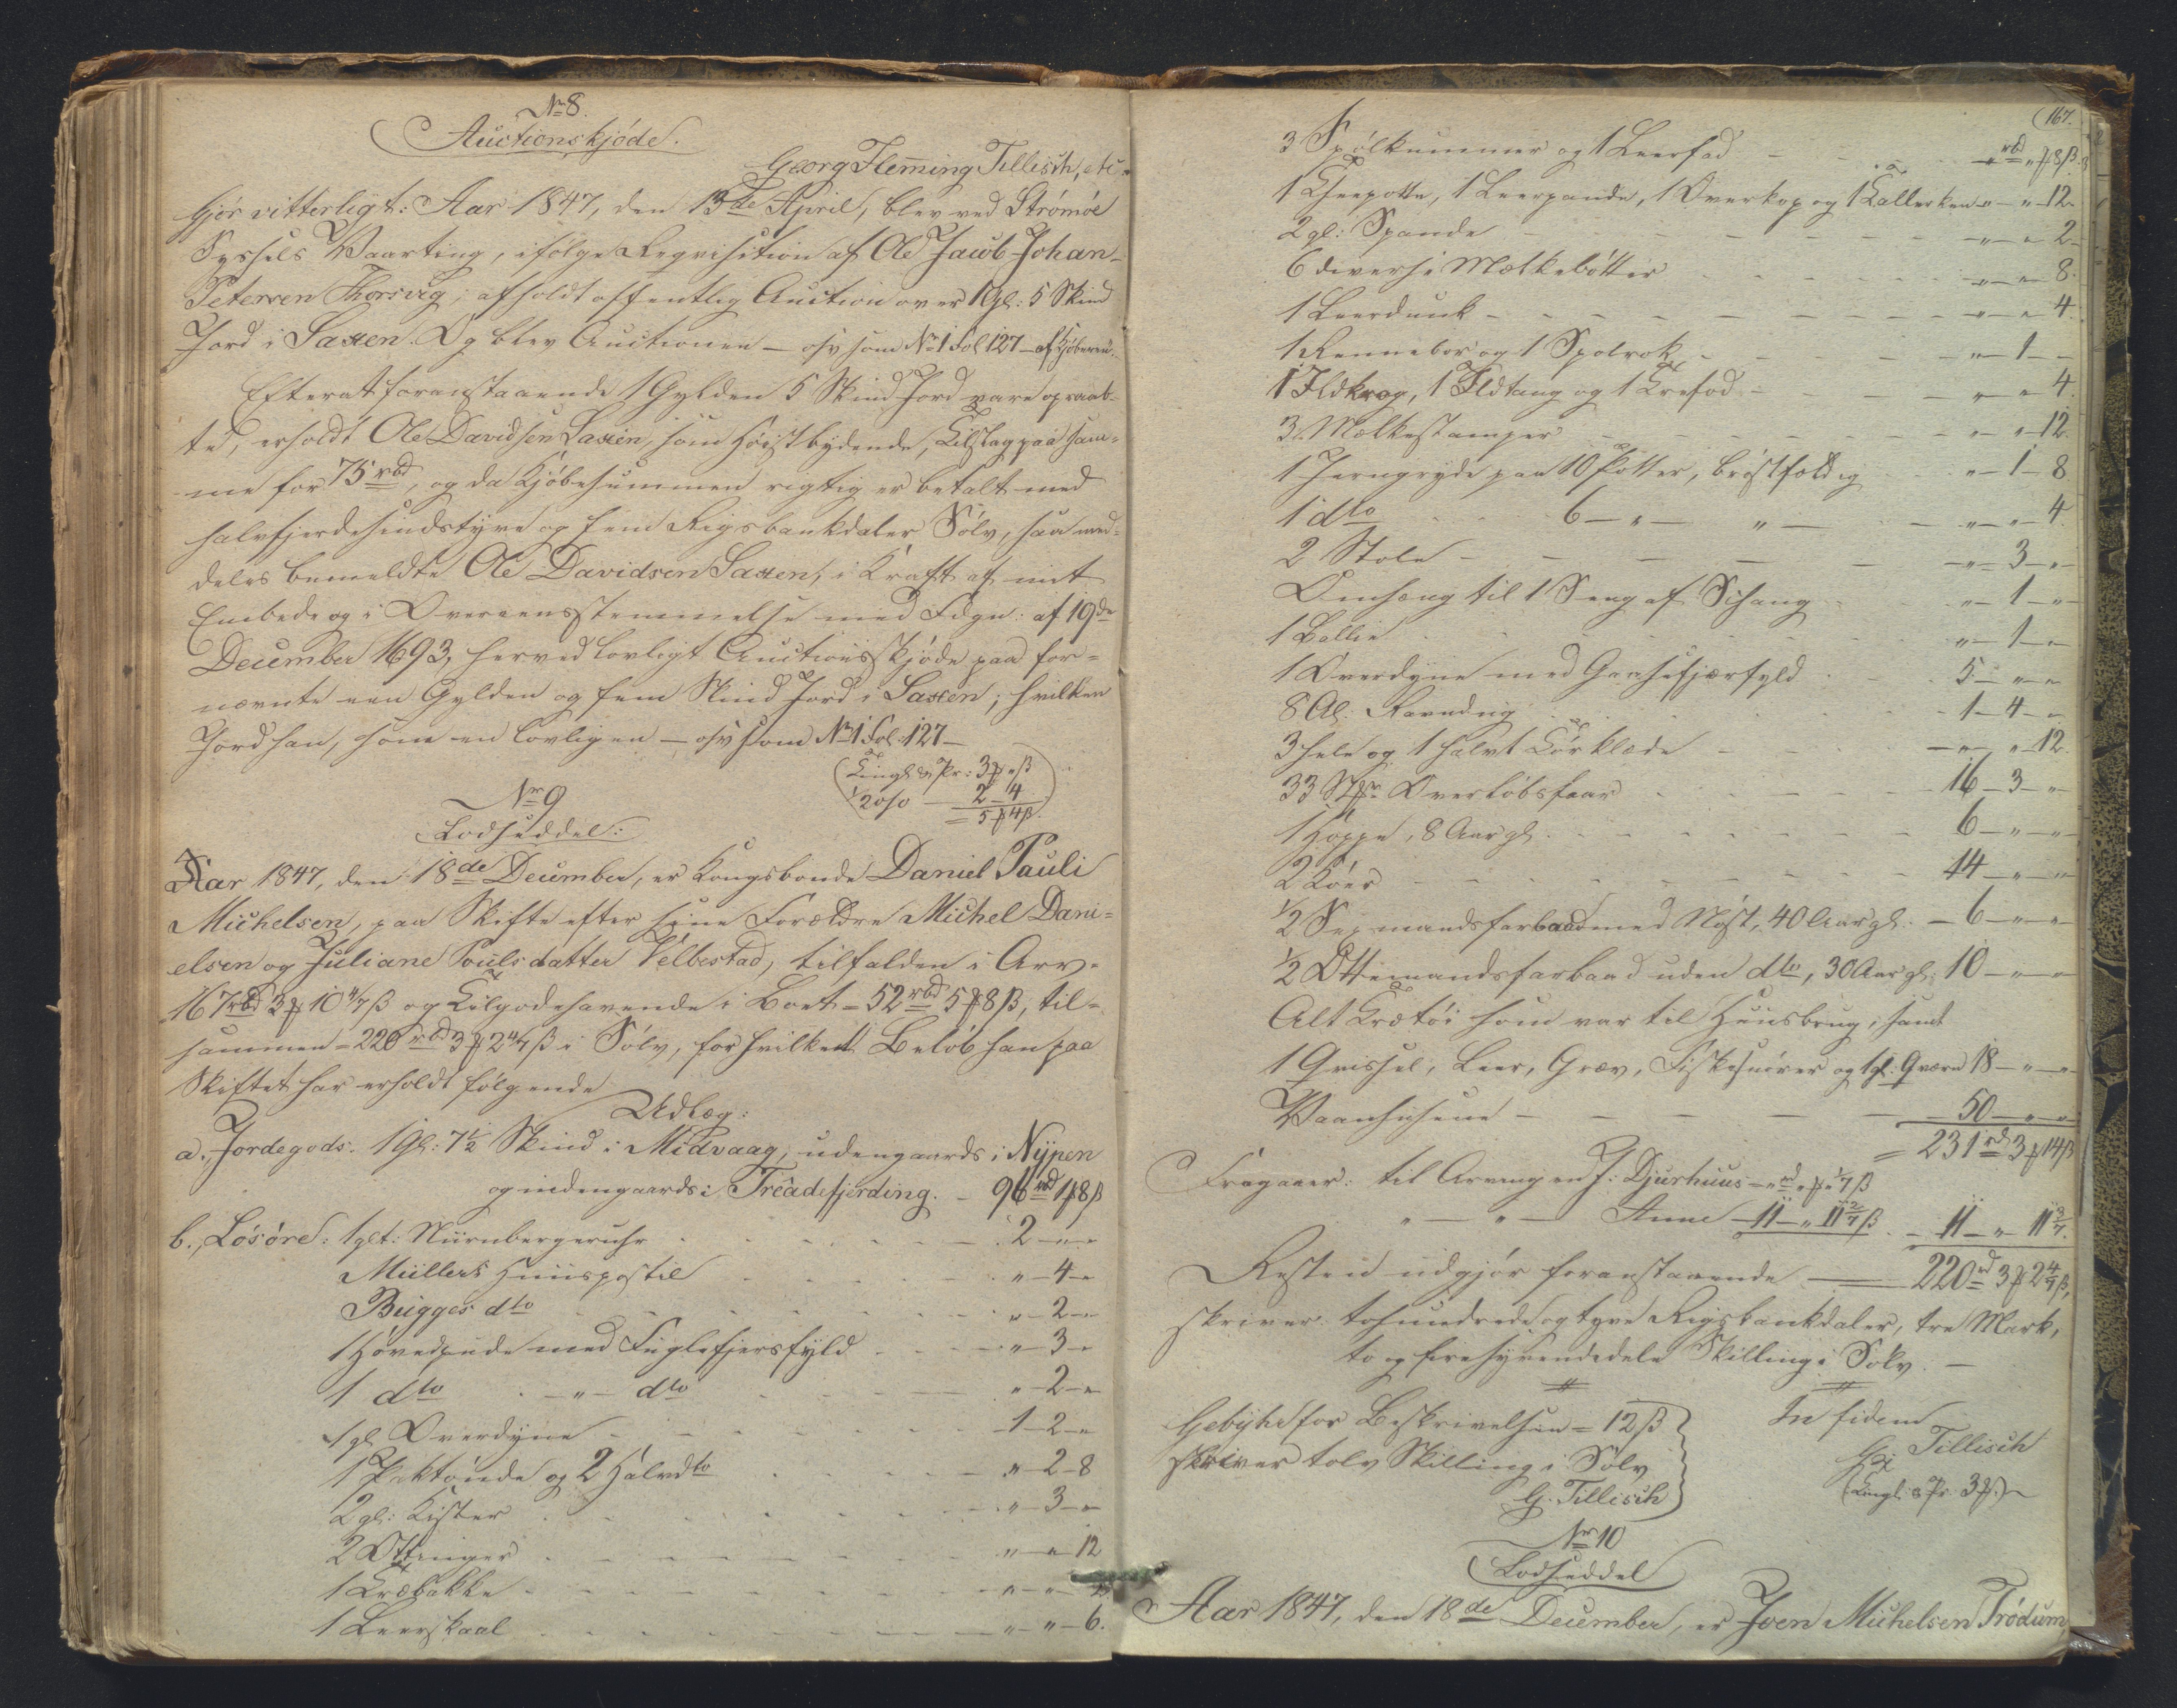 No 8.
Auctionskjøde.
Georg Flem̅ing Tillisch, etc.
Gjør vitterligt: Aar 1847, den 13de April, blev ved Strømøe
Syssels Vaarting, ifølge Reqvisition af Ole Jacob Johan-
Petersen Thorsvig, afholdt offentlig Auction over 1 Gl: 5 Skind
Jord i Saxen. Og blev Auctionen — osv som No 1 Fol 127 — af Kjøberen.
Efterat foranstaaende 1 Gylden 5 Skind Jord vare opraab-
te, erholdt Ole Davidsen Saxen, som høistbydende, Tilslag paa sam-
me for 75 rbd, og da Kjøbesummen rigtig er betalt med
halvfjerdesindstyve og fem Rigsbankdaler Sølv, saa med-
deles bemeldte Ole Davidsen Saxen, i Kraft af mit
Embede og i Overeensstemmelse med Fdgn: af 19de
December 1693, herved lovligt Auctionsskjøde paa for-
nævnte een Gylden og fem Skind Jord i Saxen; hvilken
Jord han, som en lovligen — osv som No 1 Fol: 127 —
(Tingl: & Pr: 3 ₰ „ ß
½ o/o — 2 — 4
= 5 ₰ 4 ß.)
No 9
Lodseddel:
Aar 1847, den 18de December, er Kongsbonde Daniel Pauli
Michelsen, paa Skifte efter sine Forældre Michel Dani-
elsen og Juliane Poulsdatter Velbestad, tilfalden i Arv.
167 rbd 3 ₰ 10 4/7 ß og Tilgodehavende i Boet = 52 rbd 5 ₰ 8 ß, til-
sammen = 220 rbd 3 ₰ 2 4/7 ß i Sølv, for hvilket Beløb han paa
Skiftet har erholdt følgende
Udlæg:
a., Jordegods: 1 Gl: 7½ Skind i Midvaag, udengaards i Nypen
og indengaards i Treadefjerding. - 96 rbd 1 ₰ 8 ß
b., Løsøre: 1 glt: Nürnbergeruhr - 2 — „ — „
Müllers Huuspostil - „ — 4 — „
Bugges dto - „ — 2 — „
1 Hovedpude med Fuglefjersfyld - „ — 3 — „
1 dto - „ - dto - „ — 2 — „
1 gl Overdyne - 1 — 2 — „
1 Paktønde og 2 Halvdto - „ — 2 — 8
2 gl: Kister - „ — 3 — „
2 Ottinger - „ — „ — 12
1 Træbakke - „ — „
1 Leerskaal - „ — „ — 6.
167.
3 Spølkummer og 1 Leerfad - „ rbd „ ₰ 8 ß.
1 Theepotte, 1 Leerpande, 1 Overkop og 1 Tallerken „ — „ — 12.
2 gl: Spande - „ — „ — 2 -
6 diverse Mælkebøtter - „ — „ — 8.
1 Leerdunk - „ — „ — 4.
1 Rennebor og 1 Spolrok - „ — 1 — „
1 Ildkrog, 1 Ildtang og 1 Trefod - „ — „ — 4.
3 Mælkestamper - „ — „ — 12.
1 Jerngryde paa 10 Potter, brøstfældig - „ — 1 — 8
1 dto 6 — „ — „ - „ — „ — 4.
2 Stole - „ — 3 — „
Omhæng til 1 Seng af - „ — 1 — „
1 Ballie - „ — 1 — „
1 Overdyne med Gaasefjærfyld - 5 — „ — „
8 Al: - 1 — 4 — „
3 hele og 1 halvt Tørklæde - „ — „ — 12.
33 Stkr Overløbsfaar - 16 — 3 — „
1 Hoppe, 8 Aar gl. - 6 — „ — „
2 Køer - 14 — „ — „
½ Sexmandsfarbaad med Nøst, 40 Aar gl. - 6 — „ — „
½ Ottemandsfarbaad uden dto, 30 Aar gl: 10 — „ — „
Alt Trætøi som var til Huusbrug, samt
1 Grissel, Leer, Græv, Fiskesnører og 1 gl: Qværn 18 — „ — „
Vaanhusene - 50 — „ — „
= 231 rd 3 ₰ 14 ß
Fragaaer: til Arvingen J: Djurhuus — „ rd „ ₰ „ 1/7 ß
„ — „ — Anne — 11 — „ 11 2/7 ß - 11 — „ — 11 3/7.
Resten udgjør foranstaaende — 220 rd 3 ₰ 2 4/7 ß,
skriver: tohundrede og tyve Rigsbankdaler, tre Mark,
to og fire syvendedele Skilling i Sølv. —
Gebyhr for Beskrivelsen = 12 ß
skriver tolv Skilling i Sølv
G. Tillisch
In fidem
G: Tillisch
(Tingl: & Pr 3 ₰.)
No 10
Lodseddel
Aar 1847, den 18de December, er Joen Michelsen Trødum,